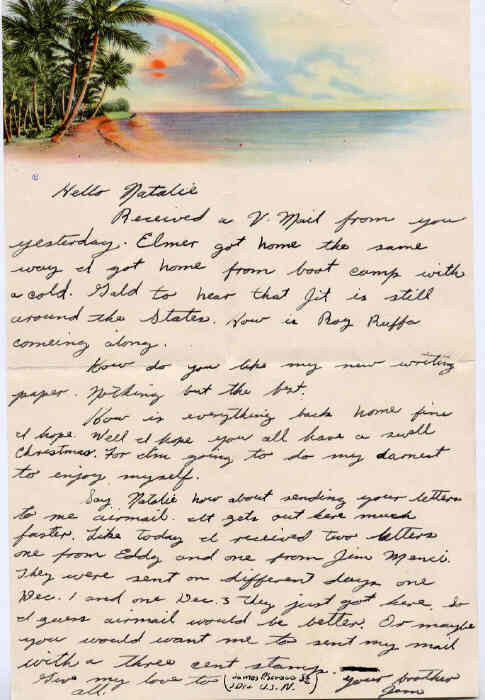 Hello Natalie
Received a V. Mail from you
yesterday. Elmer got home the same
way I got home from boot camp with
a cold. Gald to hear that Jit is still
around the States. How is Roy Ruffa
comeing along.
How do you like my new writing
paper. Nothing but the best.
How is everything back home fine
I hope. Well I hope you all have a swell
Christmas. For I'm going to do my darnest
to enjoy myself.
Say Natalie how about sending your letters
to me airmail. It gets out here much
faster. Like today I received two letters
one from Eddy and one from Jim Menci.
They were sent on different days one
Dec. 1 and one Dec. 3 they just got here. So
I guess airmail would be better. Or maybe
you would want me to sent my mail
with a three cent stamp.
Give my love to all.
your brother
Jim
James
Div U.S.N.